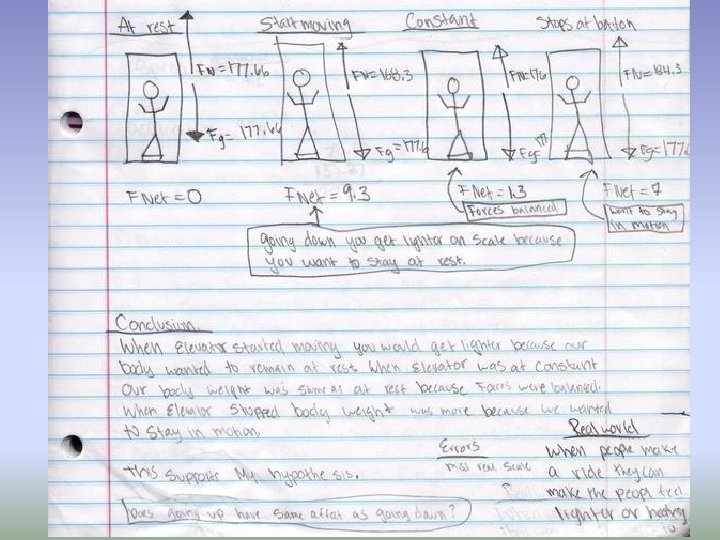 At rest
Start moving
Constant
Stops at bottom
FN=177.66
FN=168.3
FN=176
FN=184.3
Fg= 177.66
Fg=177.6
Fg=177
Fg=177.
FNet=0
FNet=9.3
FNet=1.3
FNet=7
Forces balanced
want to stay
in motion
going down you get lighter on scale because
you want to stay at rest.
Conclusion
When Elevator started moving you would get lighter because our
body wanted to remain at rest. When Elevator was at constant
Our body weight was same as at rest because Forces were balanced.
When Elevator stopped body weight was more because we wanted
to stay in motion.
this supports My hypothesis.
Errors
miss read scale
Real world
When people make
a ride they can
make the peopl feel
lighter or heavy
Does going up have same affect as going down?